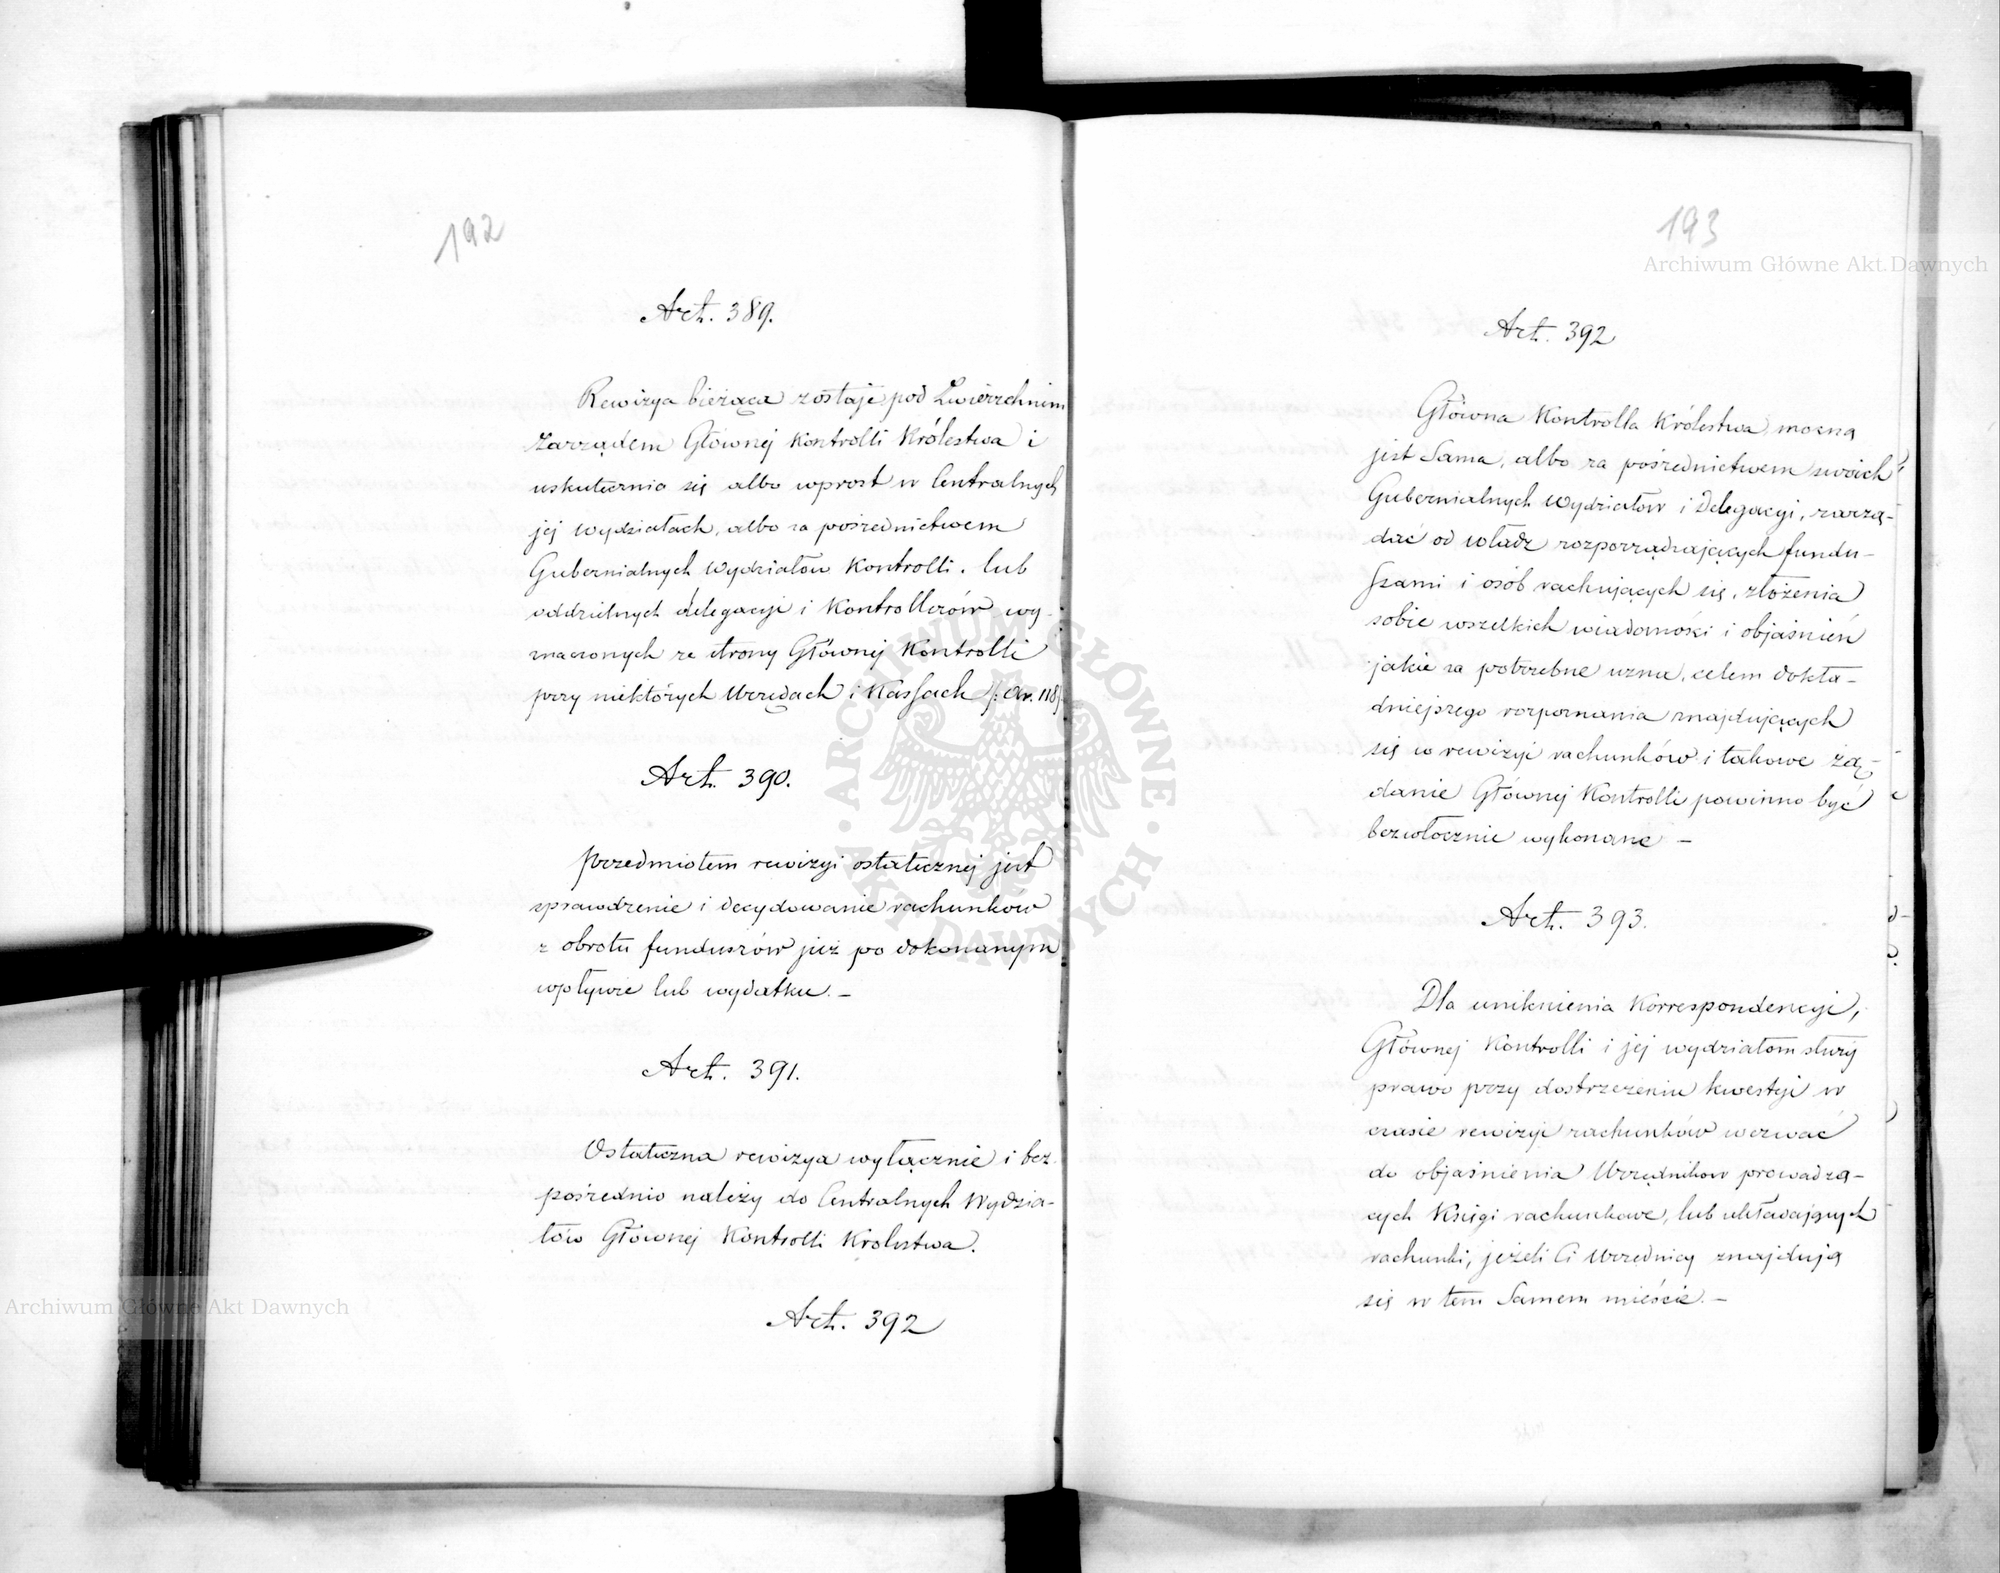 192
Art. 389.
Rewizya bieżąca zostaje pod Zwierzchnim
Zarządem Głównej Kontrolli Królestwa i
uskutecznia się albo wprost w Centralnych
jej wydziałach, albo za pośrednictwem
Gubernialnych Wydziałów Kontrolli, lub
oddzielnych delegacyi i Kontrollerów wy-
znaczonych ze strony Głównej Kontrolli
przy niektórych Urzędach i Kassach /: Ar. 118
Art. 390.
Przedmiotem rewizyi ostatecznej jest
sprawdzenie i decydowanie rachunków
z obrotu funduszów już po dokonanym
wpływie lub wydatku. –
Art. 391.
Ostateczna rewizya wyłącznie i bez-
pośrednio należy do Centralnych Wydzia-
łów Głównej Kontrolli Królestwa.
Art. 392
193
Art. 392
Główna Kontrolla Królestwa mocną
jest Sama, albo za pośrednictwem swoich
Gubernialnych Wydziałów i Delegacyi, zarzą-
dać od władz rozporządzających fundu-
szami i osób rachujących się, złożenia
sobie wszelkich wiadomości i objaśnień
jakie za potrzebne uzna, celem dokła-
dniejszego rozpoznania znajdujących
się w rewizyi rachunków i takowe żą-
danie Głównej Kontrolli powinno być
bezwłocznie wykonane –
Art. 393.
Dla uniknienia Korrespondencyi,
Głównej Kontrolli i jej wydziałom służy
prawo przy dostrzeżeniu kwestyi w
czasie rewizyi rachunków wezwać
do objaśnienia Urzędników prowadzą-
cych Księgi rachunkowe, lub układających
rachunki, jeżeli Ci Urzędnicy znajdują
się w tem Samem mieście. –
Archiwum Główne Akt Dawnych
Archiwum Główne Akt Dawnych
ARCHIWUM GŁÓWNE AKT DAWNYCH